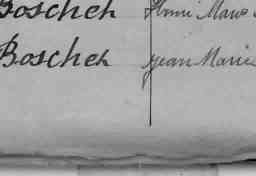 Boscheh Henri Marie
Boscheh Jean Marie